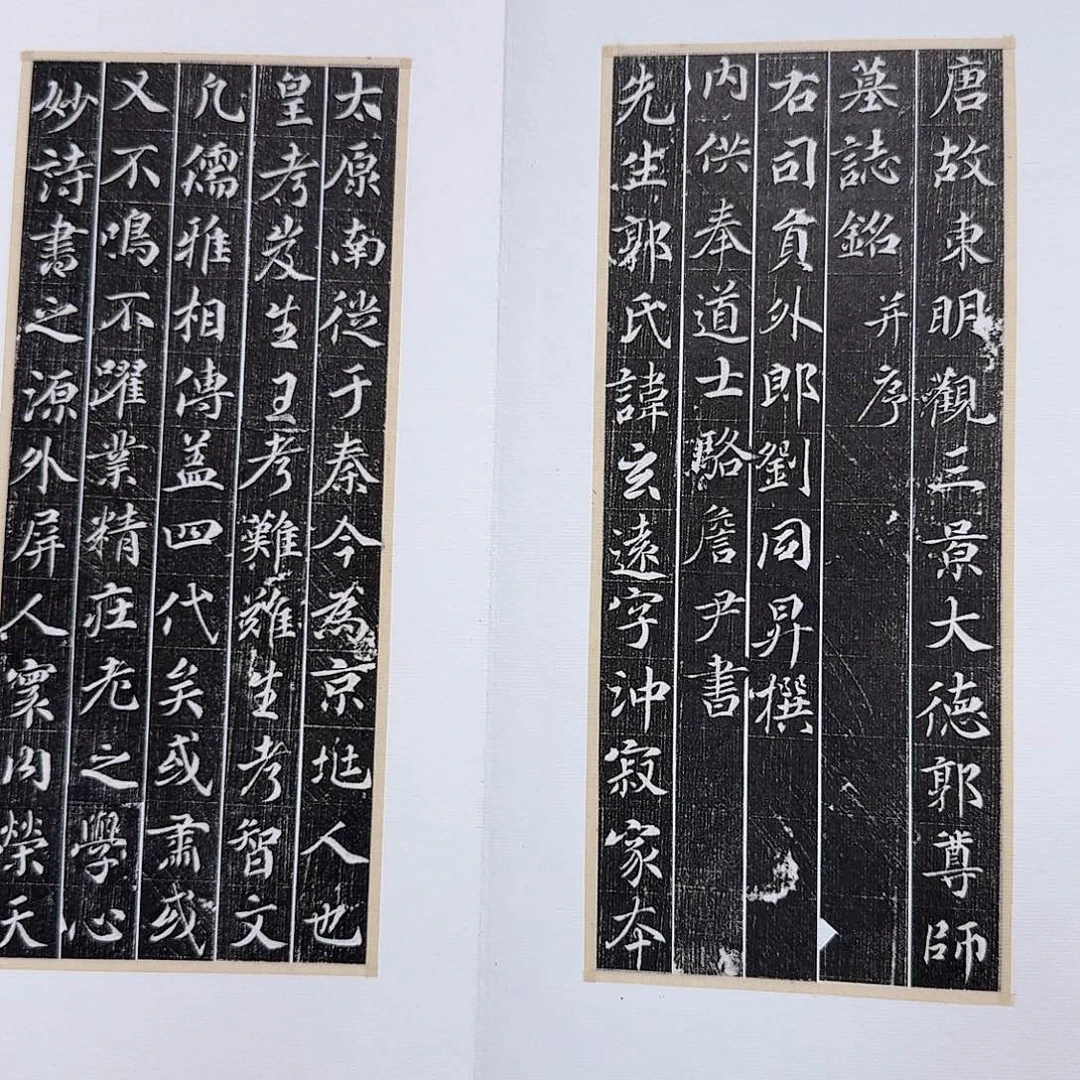 唐故東明觀三景大德郭尊師
墓誌銘 并序
右司員外郎劉同昇撰
内供奉道士駱詹尹書
先生郭氏諱玄遠字沖寂家本
太原南徙于秦今為京人也
皇考岌生王考難難生考智文
凡儒雅相傳盖四代矣或肅或
又不鳴不躍業精莊老之學心
妙詩書之源外屏人寰内榮天